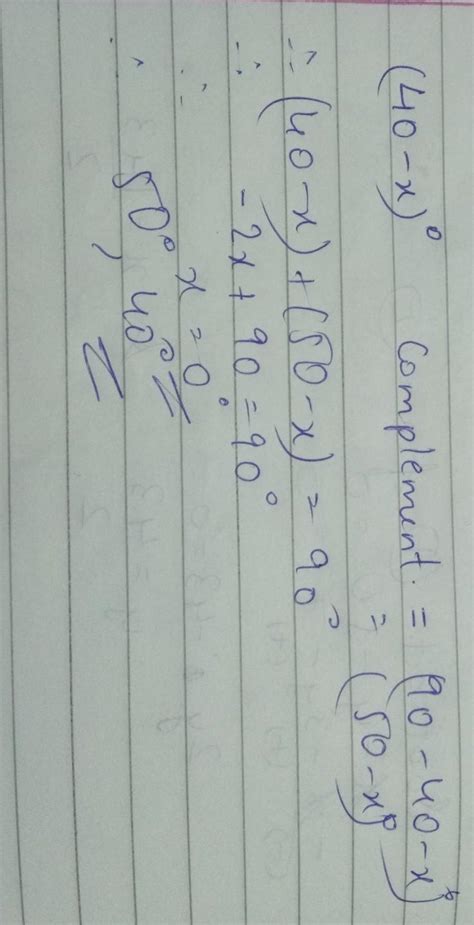 (40-x)° Complement. = (90-40-x)°
= (50-x)°
∴ (40-x)+(50-x) = 90°
∴ -2x+90 = 90°
∴ x = 0°
∴ 50°, 40°